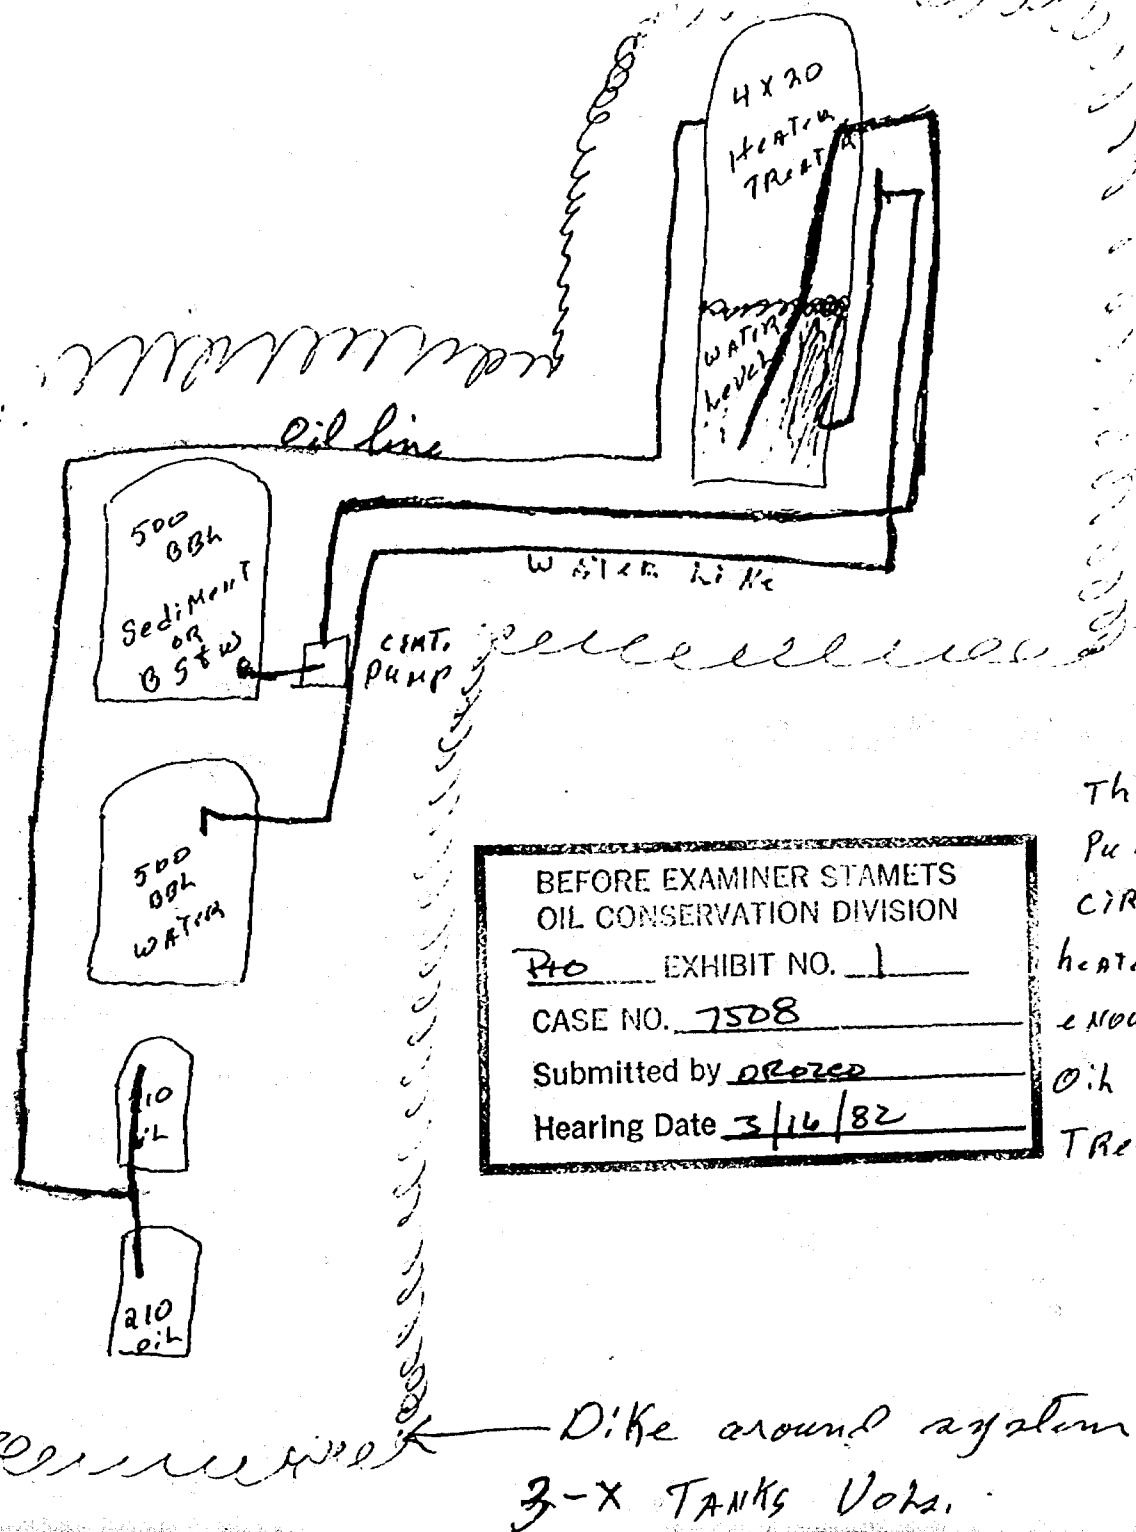 4 X 20
HeATeR
TReATeR
WATeR
LeveL
Oil line
500
BBL
SediMenT
OR
B S & W
WATeR LiNe
CENT.
PuMP
500
BBL
WATeR
210
oiL
BEFORE EXAMINER STAMETS
OIL CONSERVATION DIVISION
EXHIBIT NO. 1
CASE NO. 7508
Submitted by OROZCO
Hearing Date 3/16/82
Th
Pu
CIR
heATe
eNou
OiL
TRe
DiKe around system
3-X TANKS VoLs.